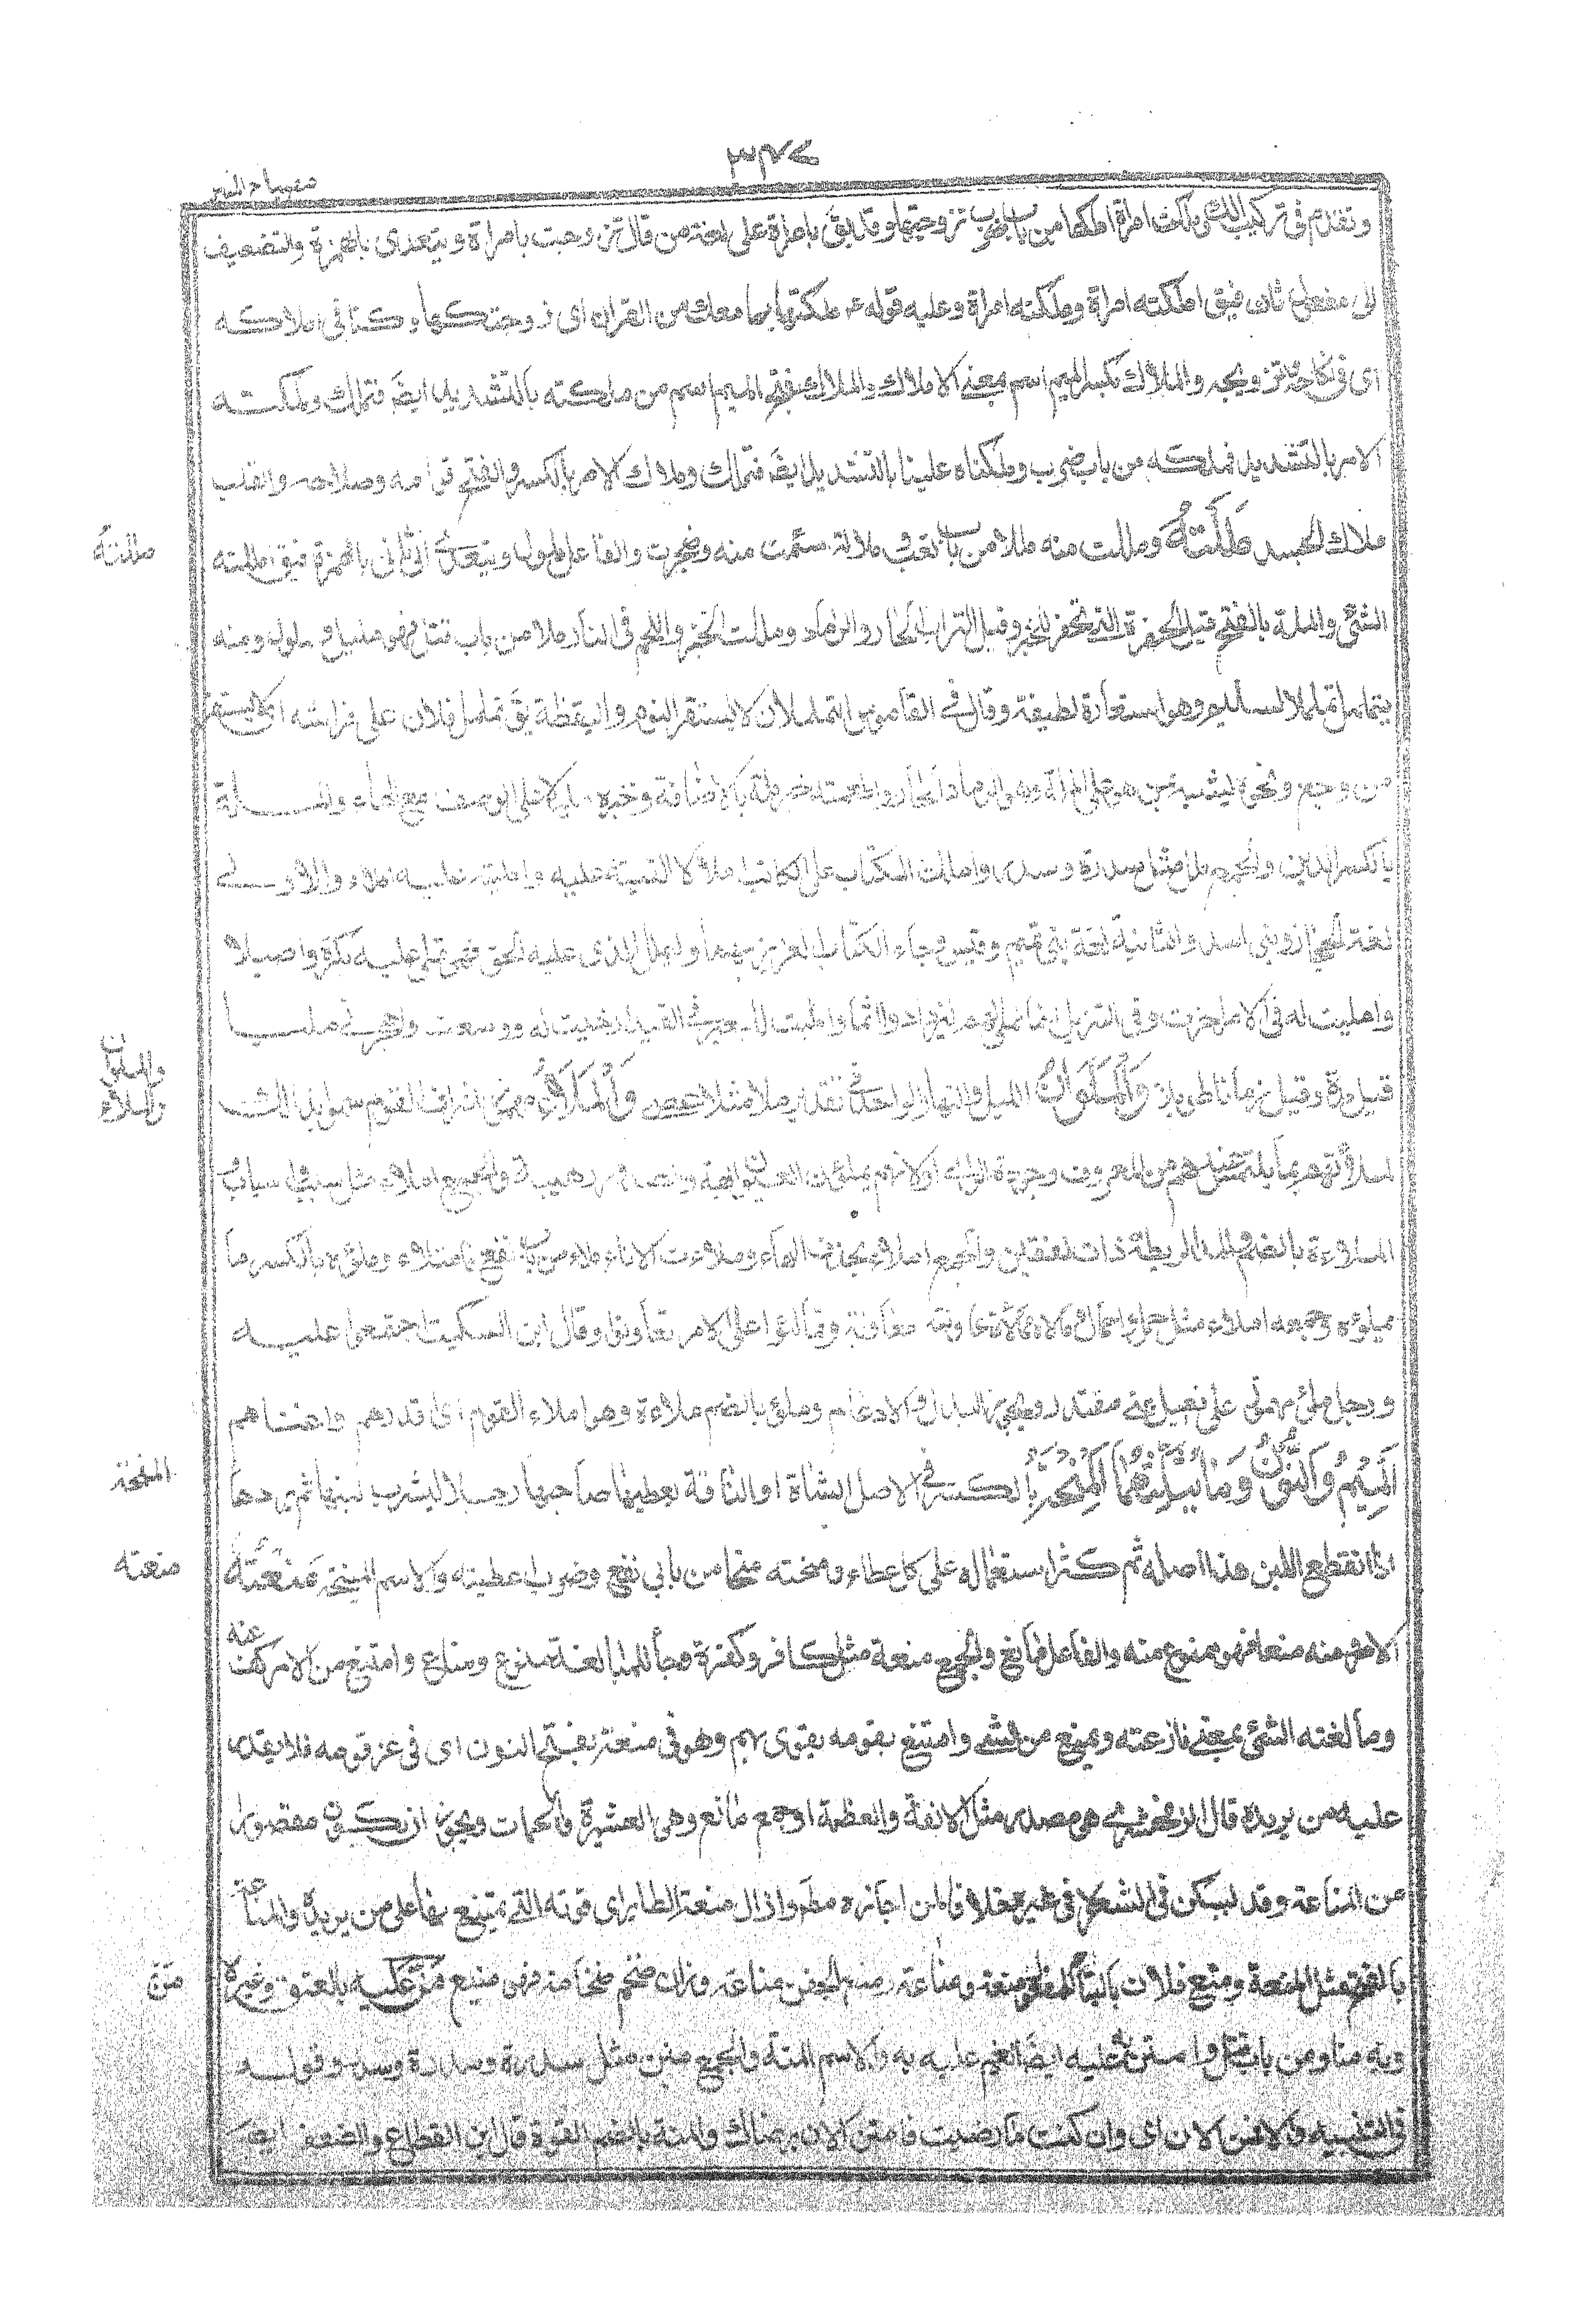 ٣٤٧
مصباح المنير
وتقدم فى تركيب ملكت امراة املكها من باب ضرب تزوجتها وقد يق بامراة على لغة من قال تزوجت بامراة ويتعدى بالهمزة والتضعيف
الى مفعول ثان فيق املكته امراة وملكته امراة وعليه قوله ملكتها بما معك من القران اى زوجتكها وكنا فى املاكه
اى فى نكاحه وتزويجه والملاك بكسر الميم اسم بمعنى الاملاك والملاك بفتح الميم اسم من ملكته بالتشديد ايضَ فتملك وملكته
الامر بالتشديد فملكه من باب ضرب وملكناه علينا بالتشديد ايضَ فتملك وملاك الامر بالكسر والفتح قوامه وصلاحه والقلب
ملاك الجسد مَلَلْتُهُ ومللت منه مللا من باب تعب و ملالة سئمت منه وضجرت والفاعل ملول ويتعدى الى الثانى بالهمزة فيق املته
مللته
الشئ والملة بالفتح قيل الحفرة التى تحفر للخبز وقيل التراب الحار والرماد ومللت الخبز واللحم فى النار ملا من باب قتل فهو مليل ومملول ومنه
يتململ تململ السليم وهو استعارة لطيفة وقال فى القاموس التململ ان لا يستقر النوم واليقظة يق تململ فلان على فراشه اى لا يستقر
من وجع ونحوه ليشبه من هو على الملة وهى الرماد الحار واطعمته خبز ملة بالاضافة وخبزة مليلا على الوصف مع الهاء والملة
بالكسر الدين والجمع ملل مثل سدرة وسدر واملت الكتاب على الكاتب املالا القيته عليه وامليته عليه املاء والاولى
لغة الحجاز وبنى اسد والثانية لغة بنى تميم وقيس وجاء الكتاب العزيز بهما وليملل الذى عليه الحق فهى تملى عليه بكرة واصيلا
وامليت له فى الامر اخرت وفى التنزيل انما نملى لهم ليزدادوا اثما وامليت للبعير فى القيد ارخيت له ووسعت واهجرنى مليا
قيل مدة وقيل زمانا طويلا وَالْمَلَوَانُ الليل والنهار الواحد فى تقدير ملا مثل عصى وَالْمَلَأُ مهموز اشراف القوم سموا بذلك
والملوان
والملاء
لملأتهم بما يلتمس عندهم من المعروف وجودة الراى او لانهم يملؤن العيون ابهة والصدور هيبة والجمع املاء مثل سبب واسباب
الملاءة بالضم والمد الريطة ذات لفقين والجمع ملاء بحذف الهاء وملات الاناء ملاء من باب نفع فامتلاء وملؤه بالكسر ما
يملؤه وجمعه املاء مثل حمل واحمال ومالاه ممالاة عاونه معاونة وتمالؤا على الامر تعاونوا وقال ابن السكيت اجتمعوا عليه
ورجل ملئ مهموز على فعيل غنى مقتدر ويجوز البدل والادغام وملؤ بالضم ملاءة وهو املاء القوم اى اقدرهم واغناهم
اَلْمِيمُ وَالنُّونُ وَمَا يُثَلِّثُهُمَا اَلْمِنْحَةُ بالكسر فى الاصل الشاة او الناقة يعطيها صاحبها رجلا ليشرب لبنها ثم يردها
المنحة
اذا انقطع اللبن هذا اصله ثم كثر استعماله على كل عطاء ومنحته منحا من بابى نفع وضرب اعطيته والاسم المنيحة مَنَعْتُهُ
منعته
الامر ومنه منعا فهو ممنوع منه والفاعل مانع والجمع منعة مثل كافر وكفرة وجاء للمبالغة منوع ومناع وامتنع من الامر كف عنه
ومانعته الشئ بمعنى نازعته وتمنع من الشئ وامتنع بقومه تقوى بهم وهو فى منعة بفتح النون اى فى عز قومه فلا يقدر
عليه من يريده قال الزمخشرى هى مصدر مثل الانفة والعظمة او جمع مانع وهى العشيرة والحماة ويجوز ان يكون مقصورا
من المناعة وقد تسكن فى الشعر لا فى غيره خلافا لمن اجازه مطَ وازال منعة الطاير اى قوته التى يمتنع بها على من يريده والمناعة
بالفتح مثل المنعة ومنع فلان بالبناء للمفعول منعة ومناعة ومنع الحصن مناعة وزان ضخم ضخامة فهو منيع مَنَّ عَلَيْهِ بالعتق وغيره
منّ
وبه منا من باب قتل وامتن به عليه ايضَ انعم عليه به والاسم المنة والجمع منن مثل سدرة وسدر وقوله
فى التلبيه فالان اى وان كنت ما رضيت فامنن الان برضاك والمنة بالضم القوة قال ابن القطاع والضعف ايضَ